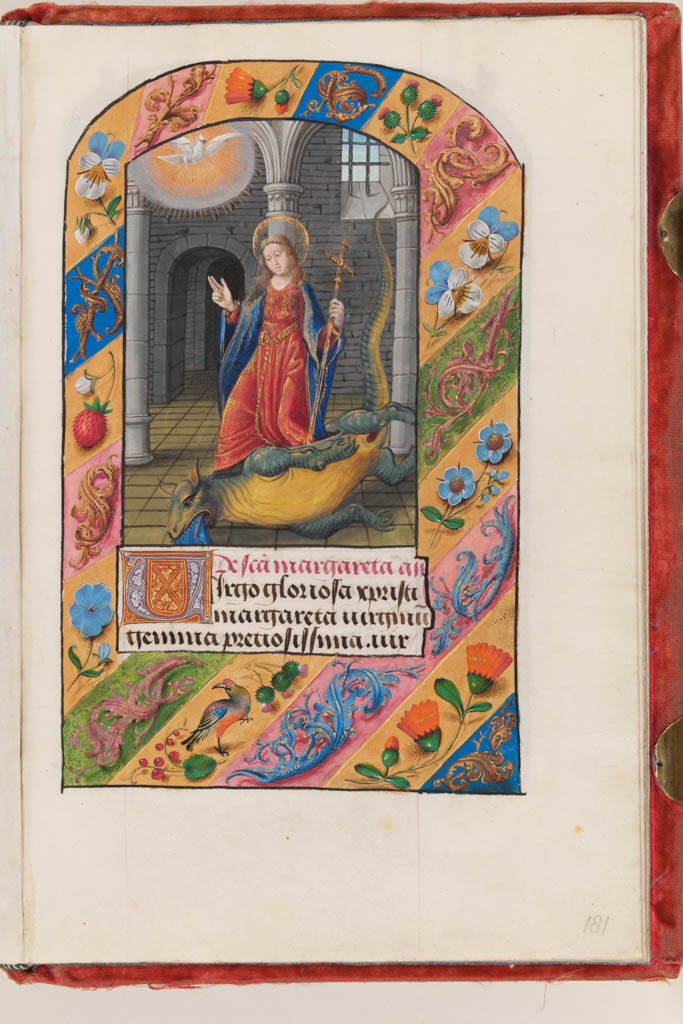 De scā margareta añ
Virgo gloriosa xpristi
margareta uirginū
gemma preciosissima. uir
181